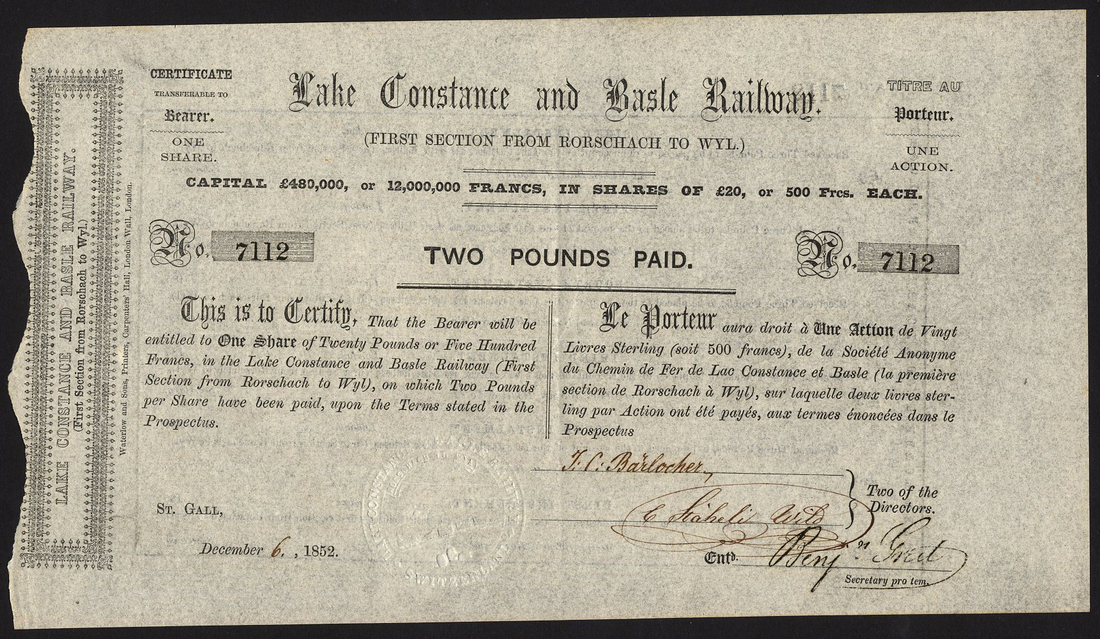 LAKE CONSTANCE AND BASLE RAILWAY.
(First Section from Rorschach to Wyl.)
Waterlow and Sons, Printers, Carpenters' Hall, London Wall, London.
CERTIFICATE
TRANSFERABLE TO
Bearer.
ONE
SHARE.
Lake Constance and Basle Railway.
(FIRST SECTION FROM RORSCHACH TO WYL.)
TITRE AU
Porteur.
UNE
ACTION.
CAPITAL £480,000, or 12,000,000 FRANCS, IN SHARES OF £20, or 500 Frcs. EACH.
No. 7112
TWO POUNDS PAID.
No. 7112
This is to Certify, That the Bearer will be
entitled to One Share of Twenty Pounds or Five Hundred
Francs, in the Lake Constance and Basle Railway (First
Section from Rorschach to Wyl), on which Two Pounds
per Share have been paid, upon the Terms stated in the
Prospectus.
Le Porteur aura droit à Une Action de Vingt
Livres Sterling (soit 500 francs), de la Société Anonyme
du Chemin de Fer de Lac Constance et Basle (la première
section de Rorschach à Wyl), sur laquelle deux livres ster-
ling par Action ont été payés, aux termes énoncées dans le
Prospectus
J. C. Bärlocher
C Stäheli Wild
Two of the
Directors.
ST. GALL,
December 6, , 1852.
Entd.
Benj
Secretary pro tem.